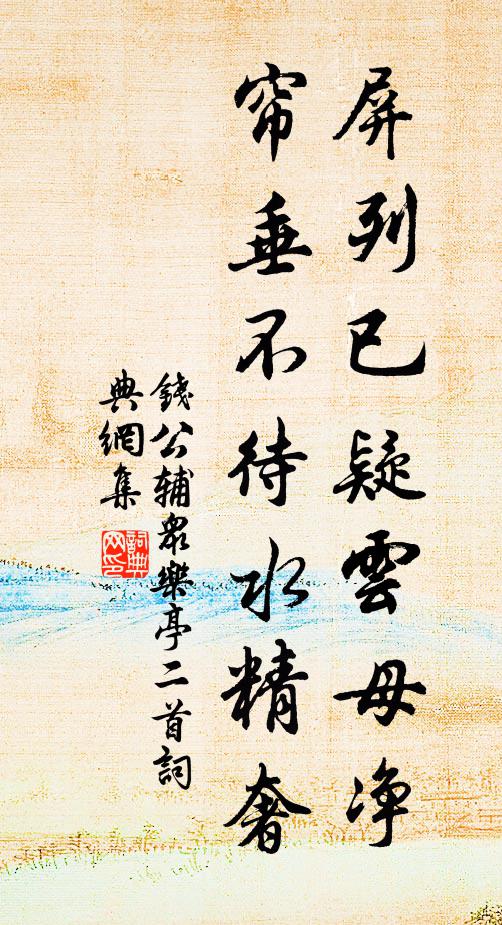 屏列已疑雲母净
帘垂不待水精奢
錢公辅衆樂亭二首詞
典網集
詞典
网印